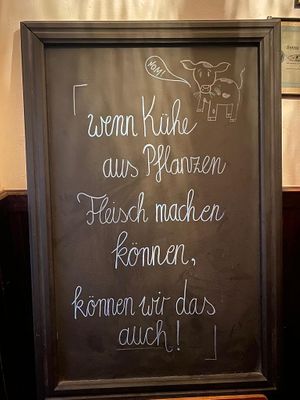 MUH!
「wenn Kühe
aus Pflanzen
Fleisch machen
können,
können wir das
auch! 」